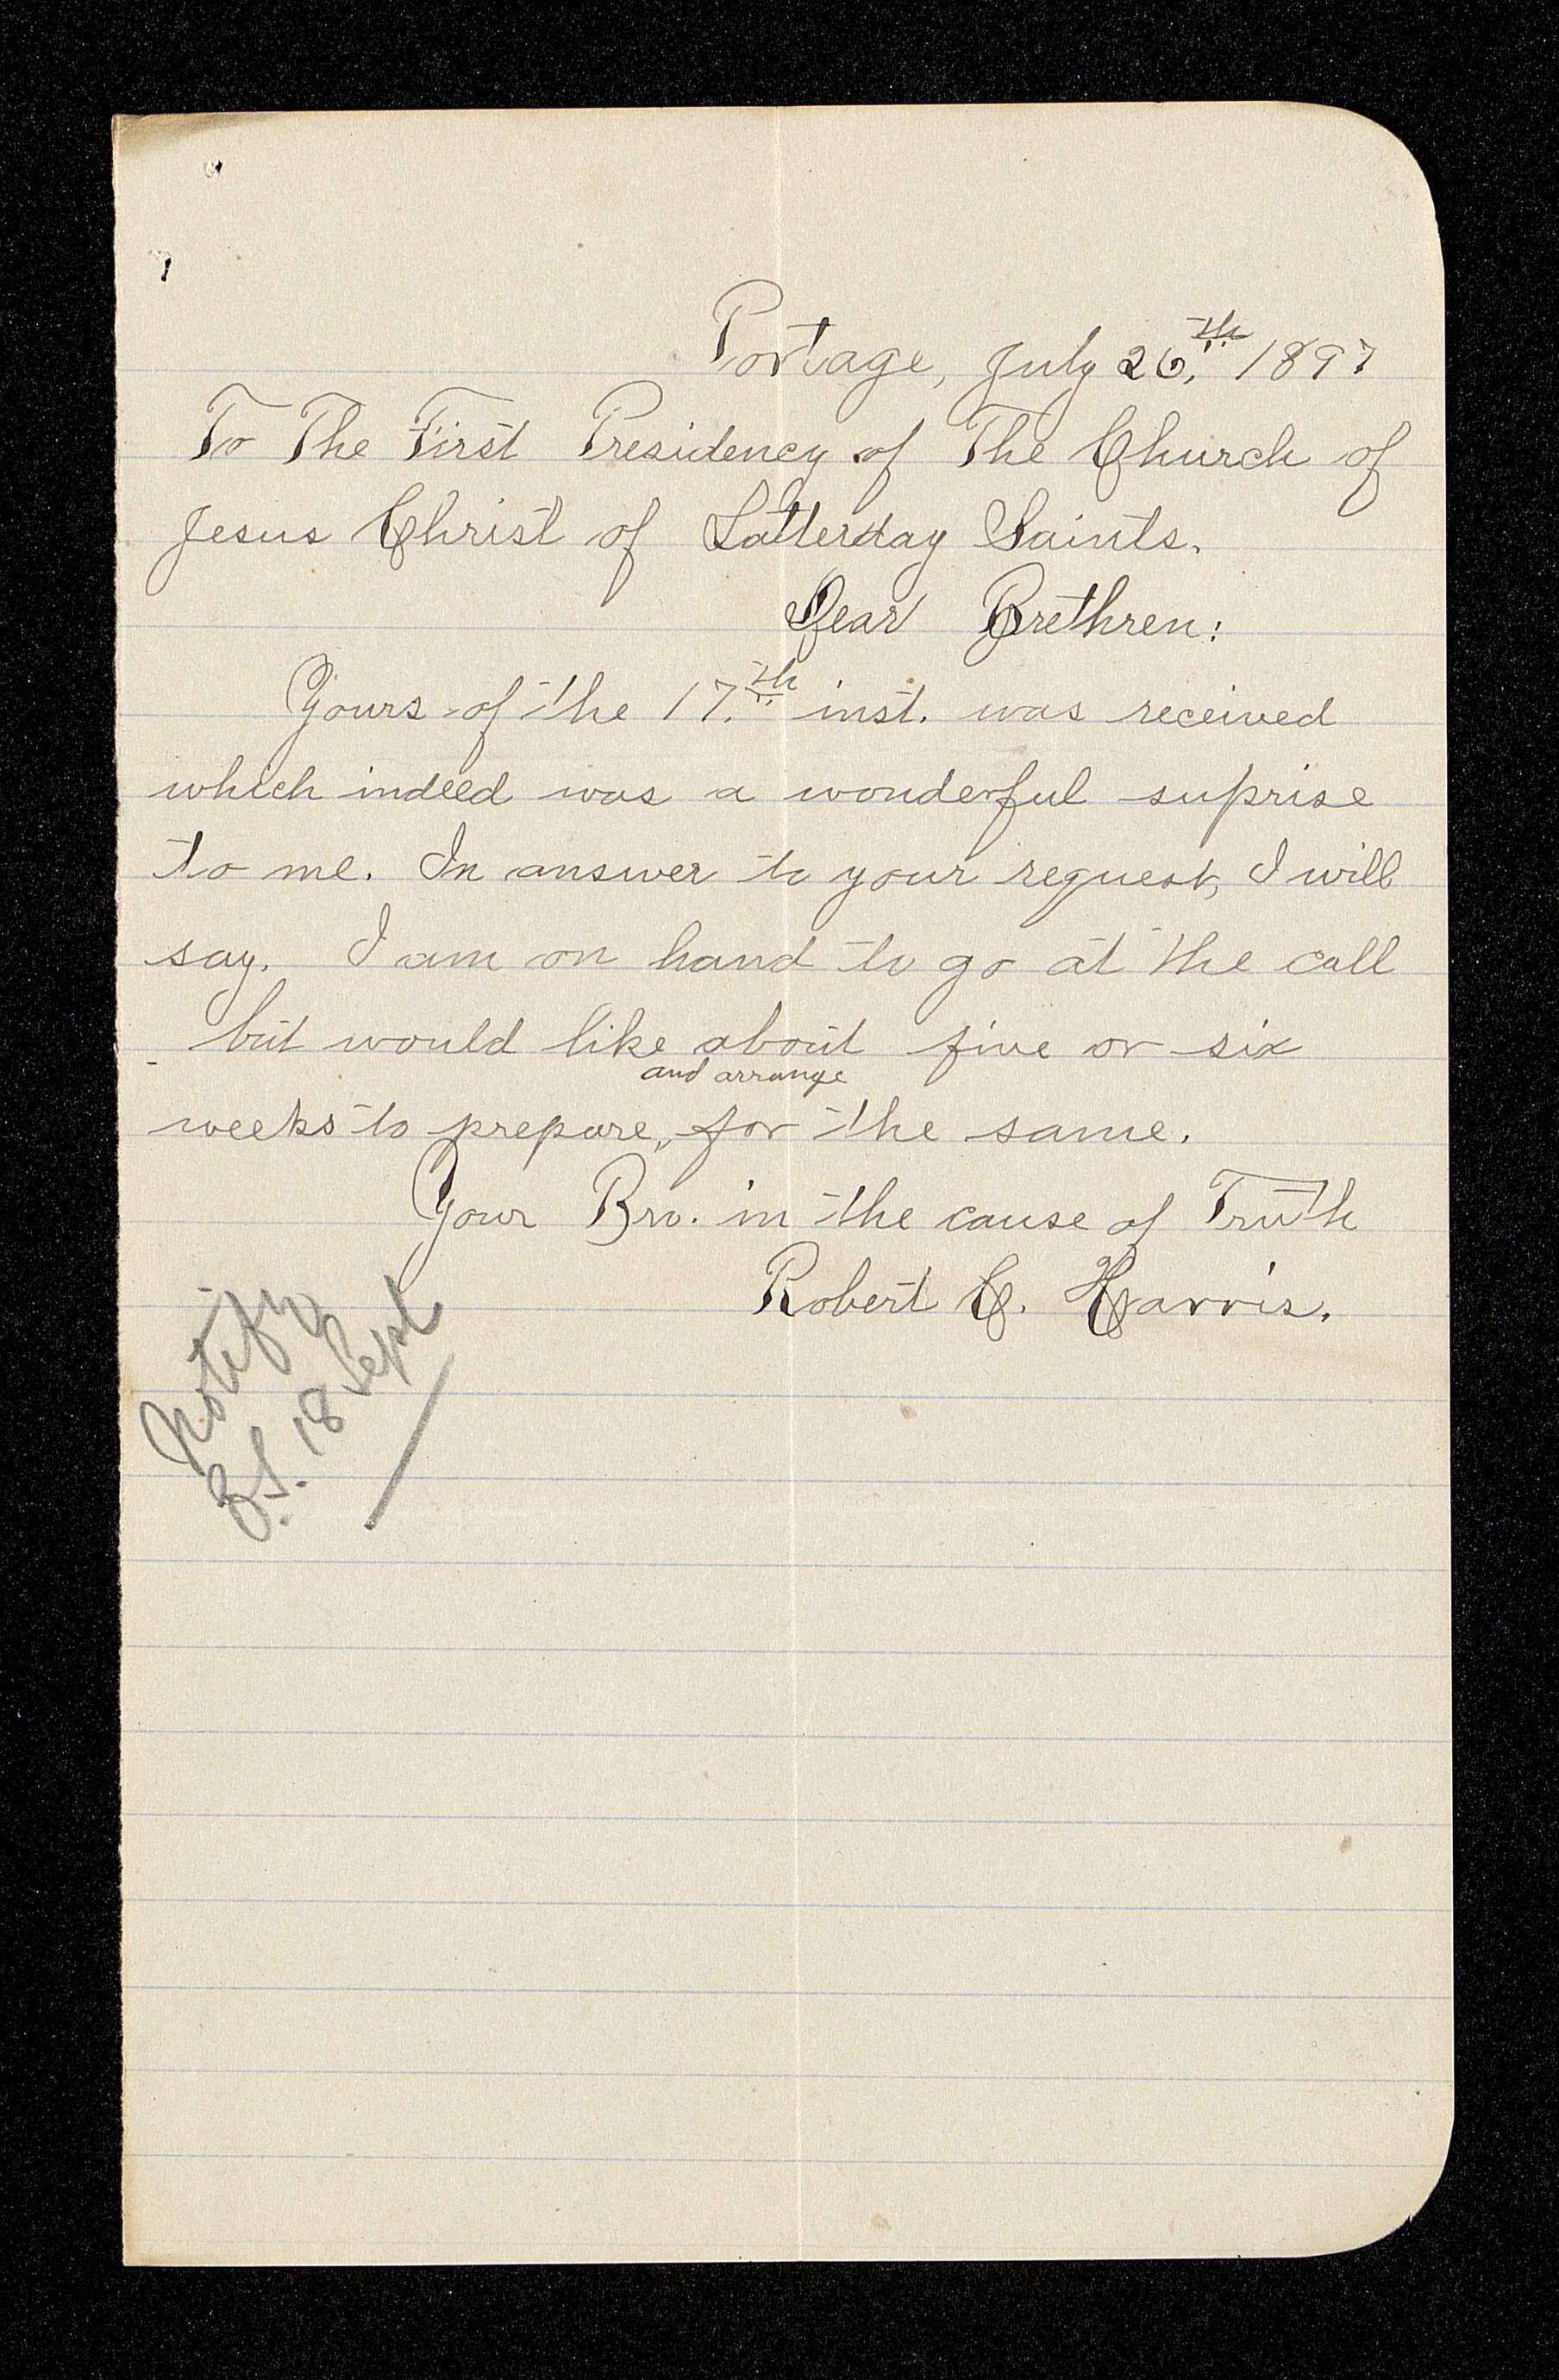 Portage, July 26.th 1897
To The First Presidency of The Church of
Jesus Christ of Latterday Saints.
Dear Brethren:
Yours of the 17.th inst. was received
which indeed was a wonderful suprise
to me. In answer to your request, I will
say. I am on hand to go at the call
but would like about five or six
and arrange
weeks to prepare, for the same.
Your Bro. in the cause of Truth
Robert C. Harris.
Notify
18 Sept